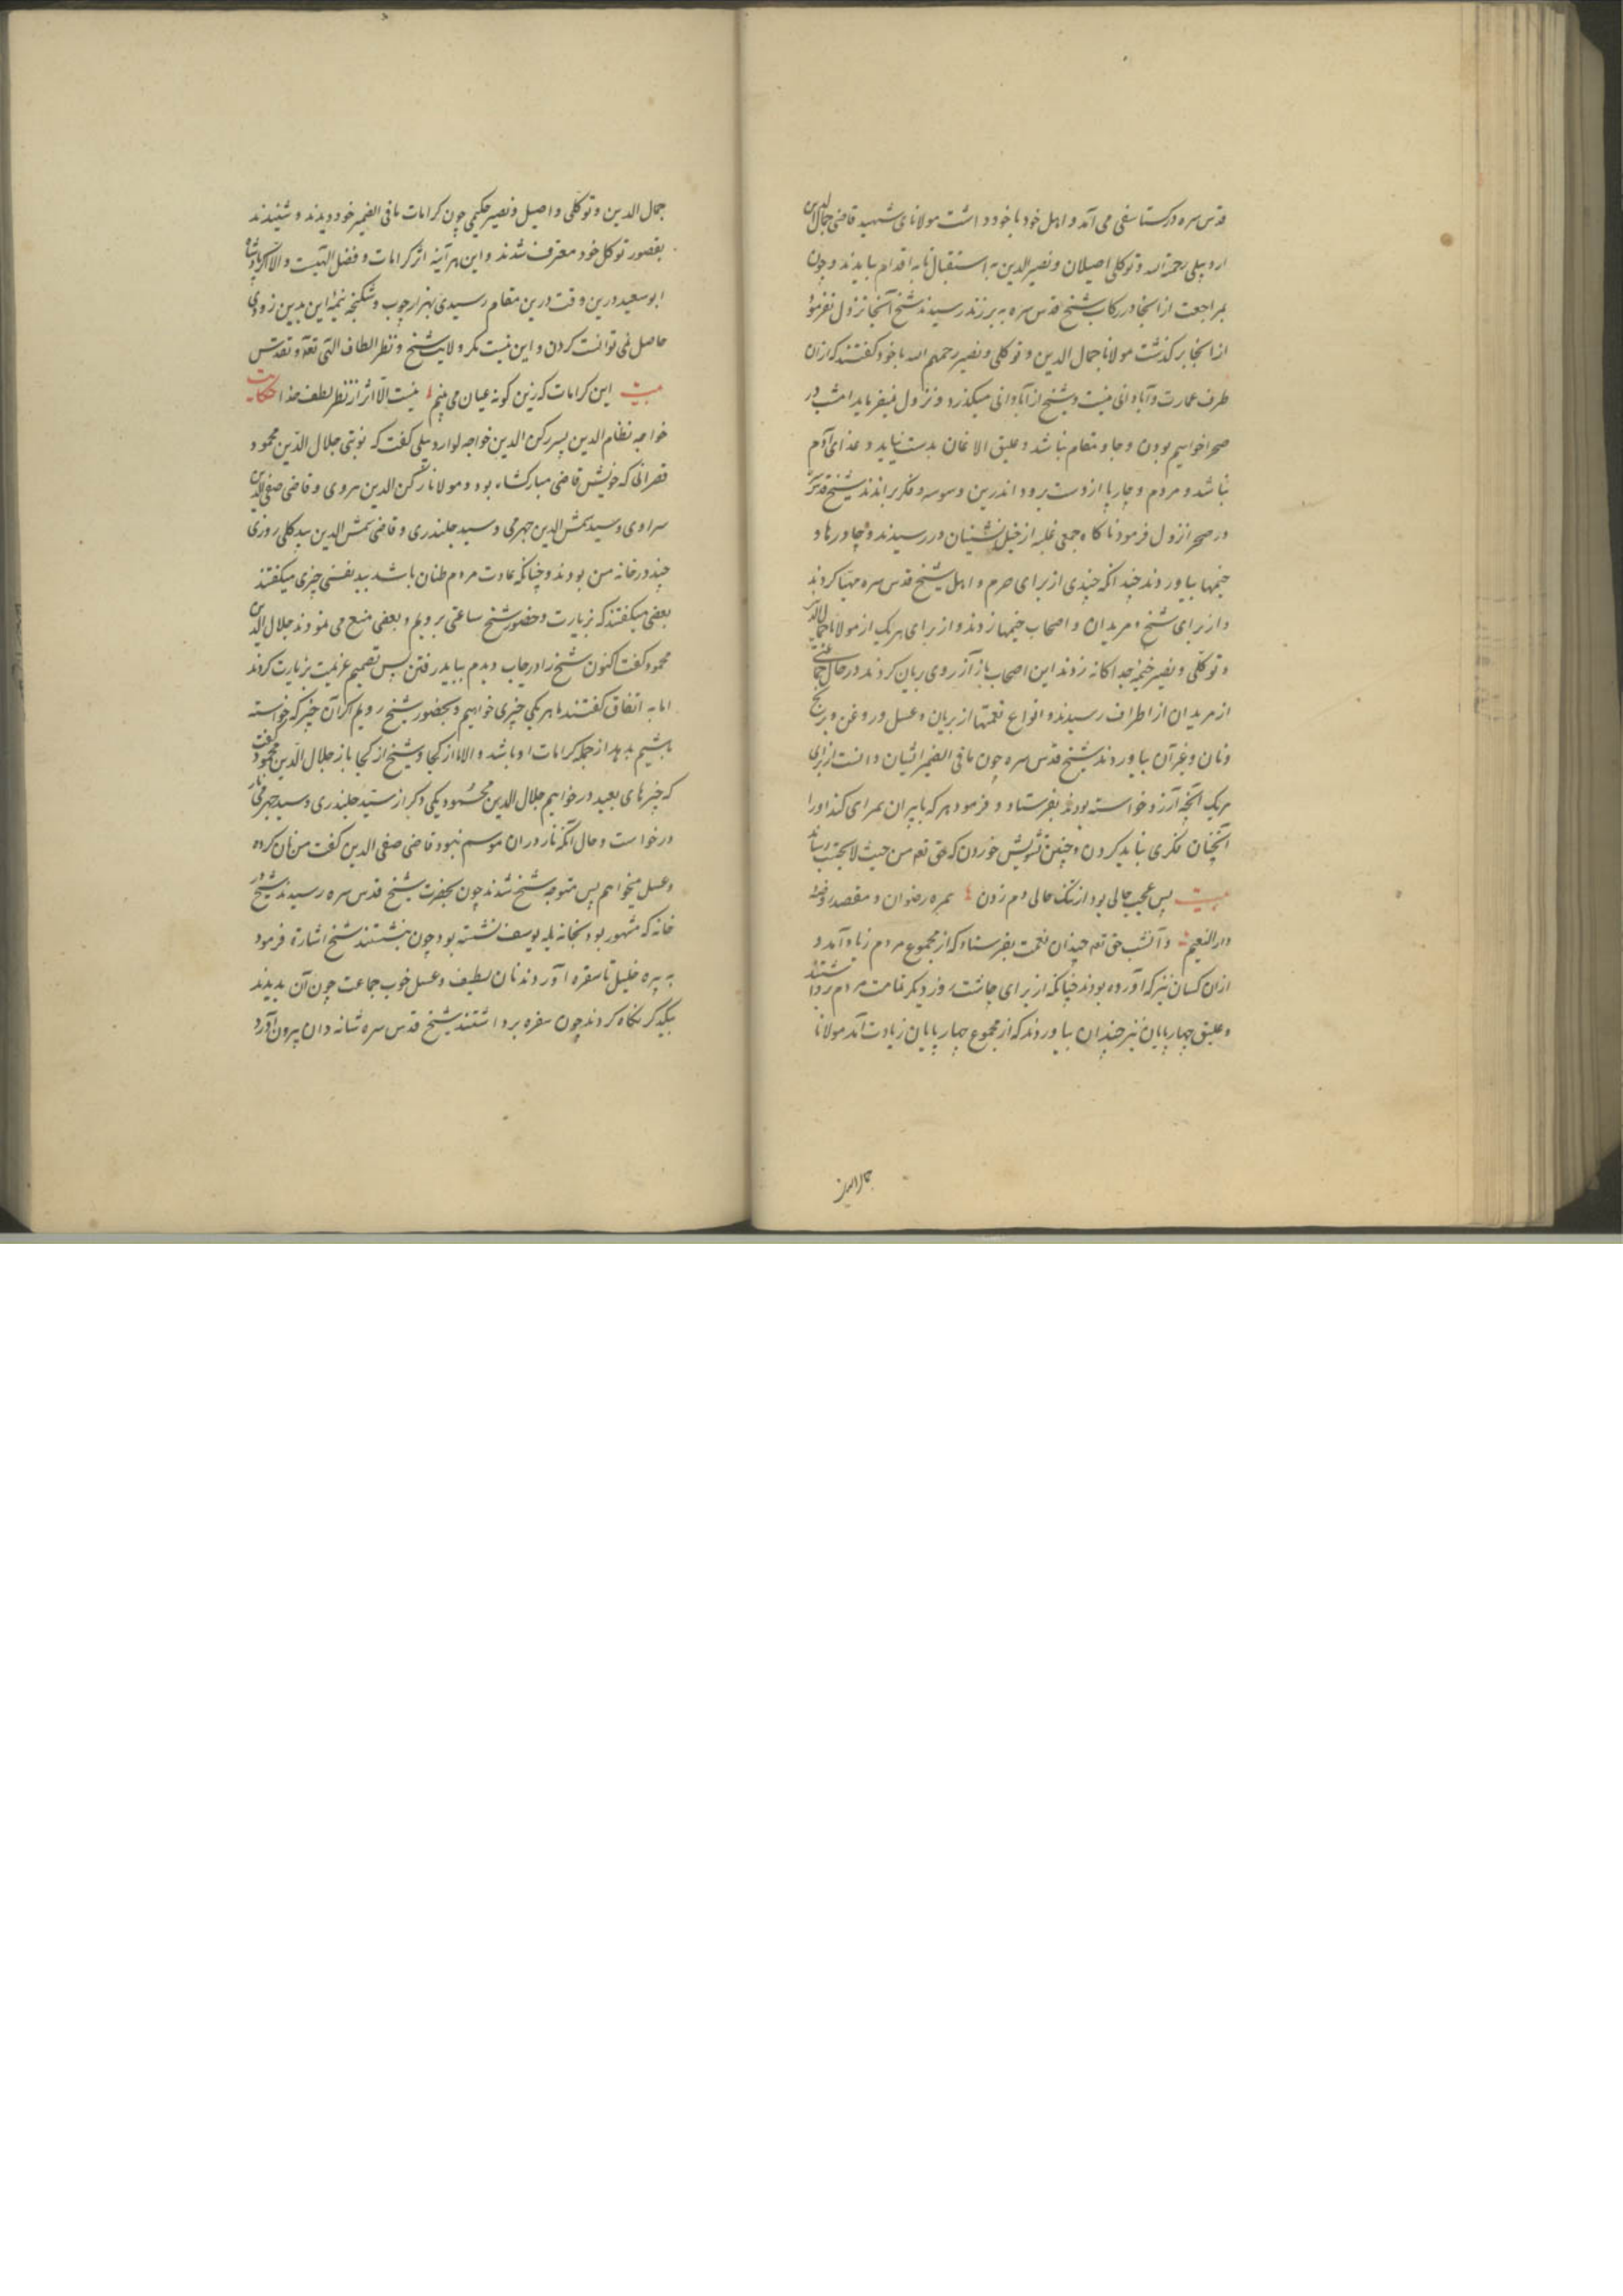 قدس سره در کستاسفی می آمد و اهل خود با خود داشت مولانای شهید قاضی جمال الدین
اردبیلی رحمة الله و توکلی اصیلان و نصیر الدین به استقبال تا به اقدام بیایدند و چون
بمراجعت از انجا در رکاب شیخ قدس سره به برزند رسیدند شیخ آنجا نزول نفرمود
از انجا برکذشت مولانا جمال الدین و توکلی و نصیر رحمهم الله با خود کفتند که ازان
طرف عمارت و آبادانی نیست و شیخ از آبادانی میکذرد و نزول نمیفرماید امشب در
صحرا خواهیم بودن و جا و مقام نباشد و علیق الاغان بدست نیاید و غذای آدم
نباشد و مردم و چارپا از دست برود اندرین وسوسه و فکر براندند شیخ قدس سره
در صحرا نزول فرمود ناکاه جمعی غلبه از خیل نشینان در رسیدند و چادرها و
خیمها بیاوردند چندانکه چندی از برای حرم و اهل شیخ قدس سره مهیا کردند
و از برای شیخ و مریدان و اصحاب خیمها زدند و از برای هر یک از مولانا جمال الدین
و توکلی و نصیر خیمه جداکانه زدند این اصحاب باز آرزوی بریان کردند در حال جماعتی
از مریدان از اطراف رسیدند و انواع نعمتها از بریان و عسل و روغن و برنج
و نان و غیر آن بیاوردند شیخ قدس سره چون ما فی الضمیر ایشان دانست از برای
هر یک آنچه آرزو خواسته بودند بفرستاد و فرمود هر که با پیران همرای کند او را
آنچنان فکری نباید کردن و چنین تشویش خوردن که حق تعه من حیث لا یحتسب رساند
بیت پس عجب حالی بود از تنک حالی دم زدن همره رضوان و مقصد روضۀ
دار النعیم و آنشب حق تعه چندان نعمت بفرستاد که از مجموع مردم زیاد آمد و
ازان کسان نیز که آورده بودند چنانکه از برای چاشت روز دیکر تمامت مردم برداشتند
و علیق چهارپایان نیز چندان بیاوردند که از مجموع چهارپایان زیادت آمد مولانا
جمال الدین
جمال الدین و توکلی و اصیل و نصیر حکیمی چون کرامات ما فی الضمیر خود دیدند و شنیدند
بقصور توکل خود معترف شدند و این هر آینه اثر کرامات و فضل الهیست و الا اکر پادشاه
ابو سعید درین وقت درین مقام رسیدی بهزار چوب و شکنجه نیمۀ این بدین زودی
حاصل نمی توانست کردن و این نیست مکر ولایت شیخ و نظر الطاف الهی تعه و تقدس
بیت این کرامات که زین کونه عیان می بینم نیست الا اثر از نظر لطف خدا حکایت
خواجه نظام الدین پسر رکن الدین خواجه لو اردبیلی کفت که نوبتی جلال الدین محمود
قصرانی که خویش قاضی مبارکشاه بود و مولانا رکن الدین هروی و قاضی صفی الدین
سراوی و سید شمس الدین جهرمی و سید جلندری و قاضی شمس الدین بید کلی روزی
چند در خانه من بودند و چنانکه عادت مردم طنان باشد ببد نفسی چیزی میکفتند
بعضی میکفتند که بزیارت و حضور شیخ ساعتی برویم و بعضی منع می نمودند جلال الدین
محمود کفت اکنون شیخ را در جاب دیدم بباید رفتن پس تصمیم عزیمت بزیارت کردند
اما به اتفاق کفتند ما هر یکی چیزی خواهیم و بحضور شیخ رویم اکر آن چیز که خواسته
باشیم بدهد از جمله کرامات او باشد و الا ما از کجا و شیخ از کجا باز جلال الدین محمود کفت
که چیزهای بعید در خواهیم جلال الدین محمود یکی دکر از سید جلندری و سید جهرمی نار
درخواست و حال آنکه نار دران موسم نبود قاضی صفی الدین کفت من نان کرده
و عسل میخواهم پس متوجه شیخ شدند چون بحضرت شیخ قدس سره رسیدند شیخ در
خانه که مشهور بود بخانه پله یوسف نشسته بود چون بنشستند شیخ اشارة فرمود
به پیره خلیل تا سفره آوردند نان لطیف و عسل خوب جماعت چون آن بدیدند
بیکدکر نکاه کردند چون سفره برداشتند شیخ قدس سره شانه دان بیرون آورد